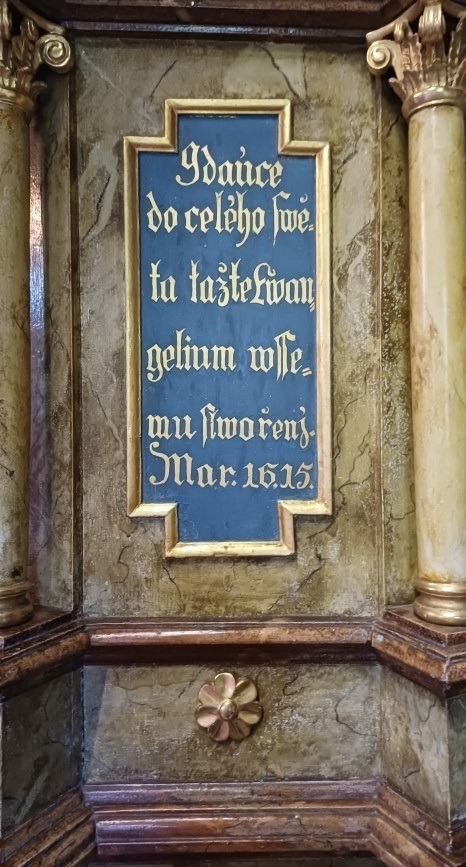 Gdauce
do celého swě=
ta kažte Ewan
gelium wsse=
mu stwořenj.
Mar: 16.15.